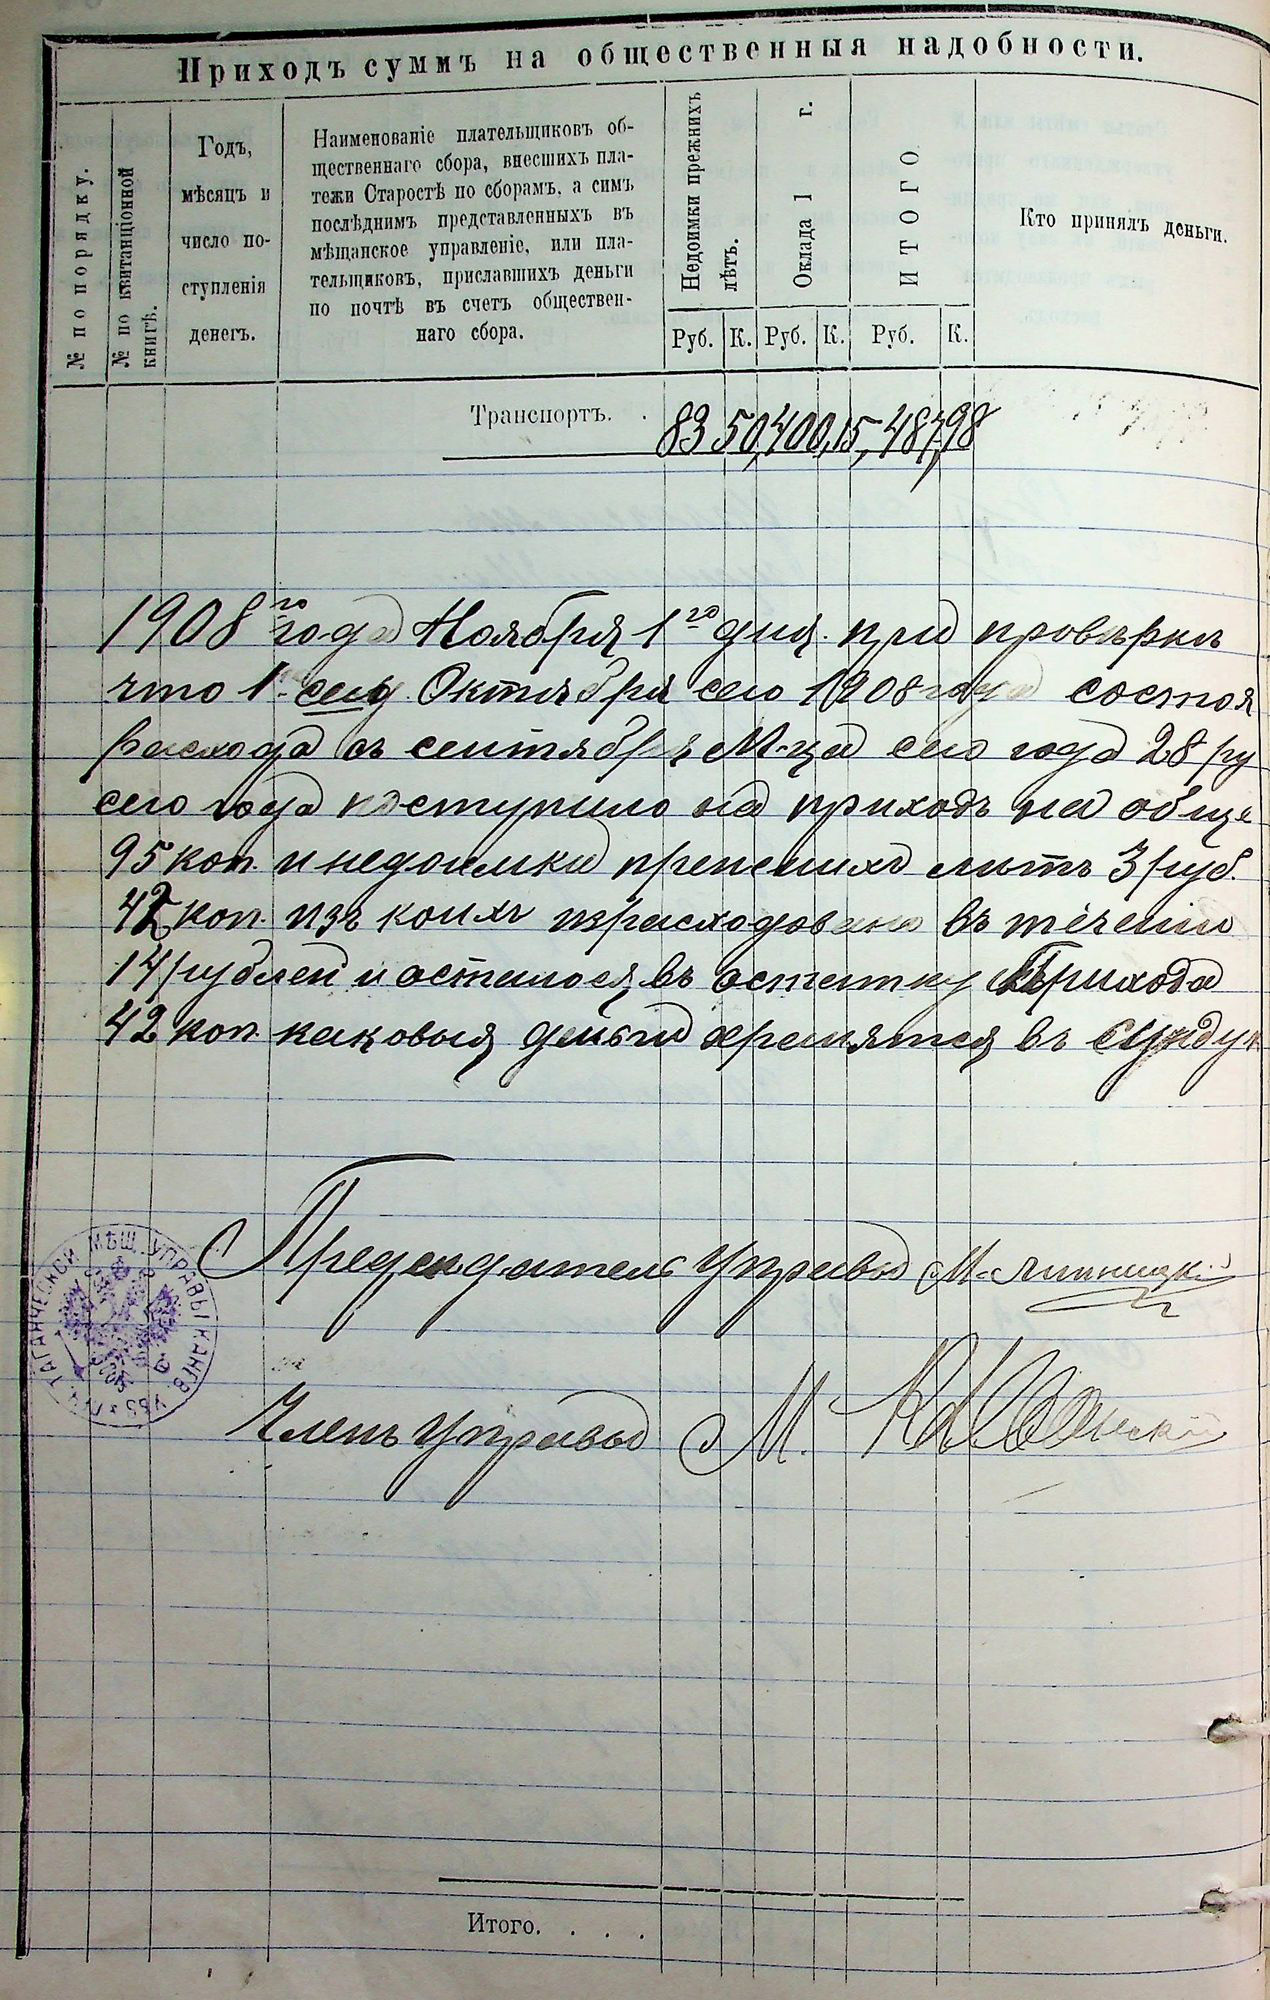 Приходъ суммъ на общественныя надобности.
№ по порядку.
№ по квитанціонной книгѣ.
Годъ,
мѣсяцъ и
число по-
ступленія
денегъ.
Наименованіе плательщиковъ об-
щественнаго сбора, внесшихъ пла-
тежи Старостѣ по сборамъ, а симъ
послѣднимъ представленныхъ въ
мѣщанское управленіе, или пла-
тельщиковъ, приславшихъ деньги
по почтѣ въ счетъ обществен-
наго сбора.
Недоимки прежнихъ лѣтъ.
Оклада 1 г.
ИТОГО
Кто принялъ деньги.
Руб. К. Руб. К. Руб. К.
Транспортъ. . 83 50, 400, 15, 487, 98
1908 го года Ноября 1 го дня при провѣркѣ
что 1. сего Октября сего 1908 года состоя
расхода съ сентября М-ца сего года 28 ру
сего года поступило на приходъ на обще
95 коп. и недоимки прежнихъ лѣтъ 3 руб.
42 коп. изъ коихъ израсходовано въ теченіи
14 рублей и осталося въ остатку Прихода
42 коп. каковыя деньги хранятся въ сундук
Председатель Управы М. Липницкій
Членъ Управы М.
ТАГАНЧЕСКОЙ МѢЩ. УПРАВЫ КАНЕВ. УѢЗ.
Итого. . . .